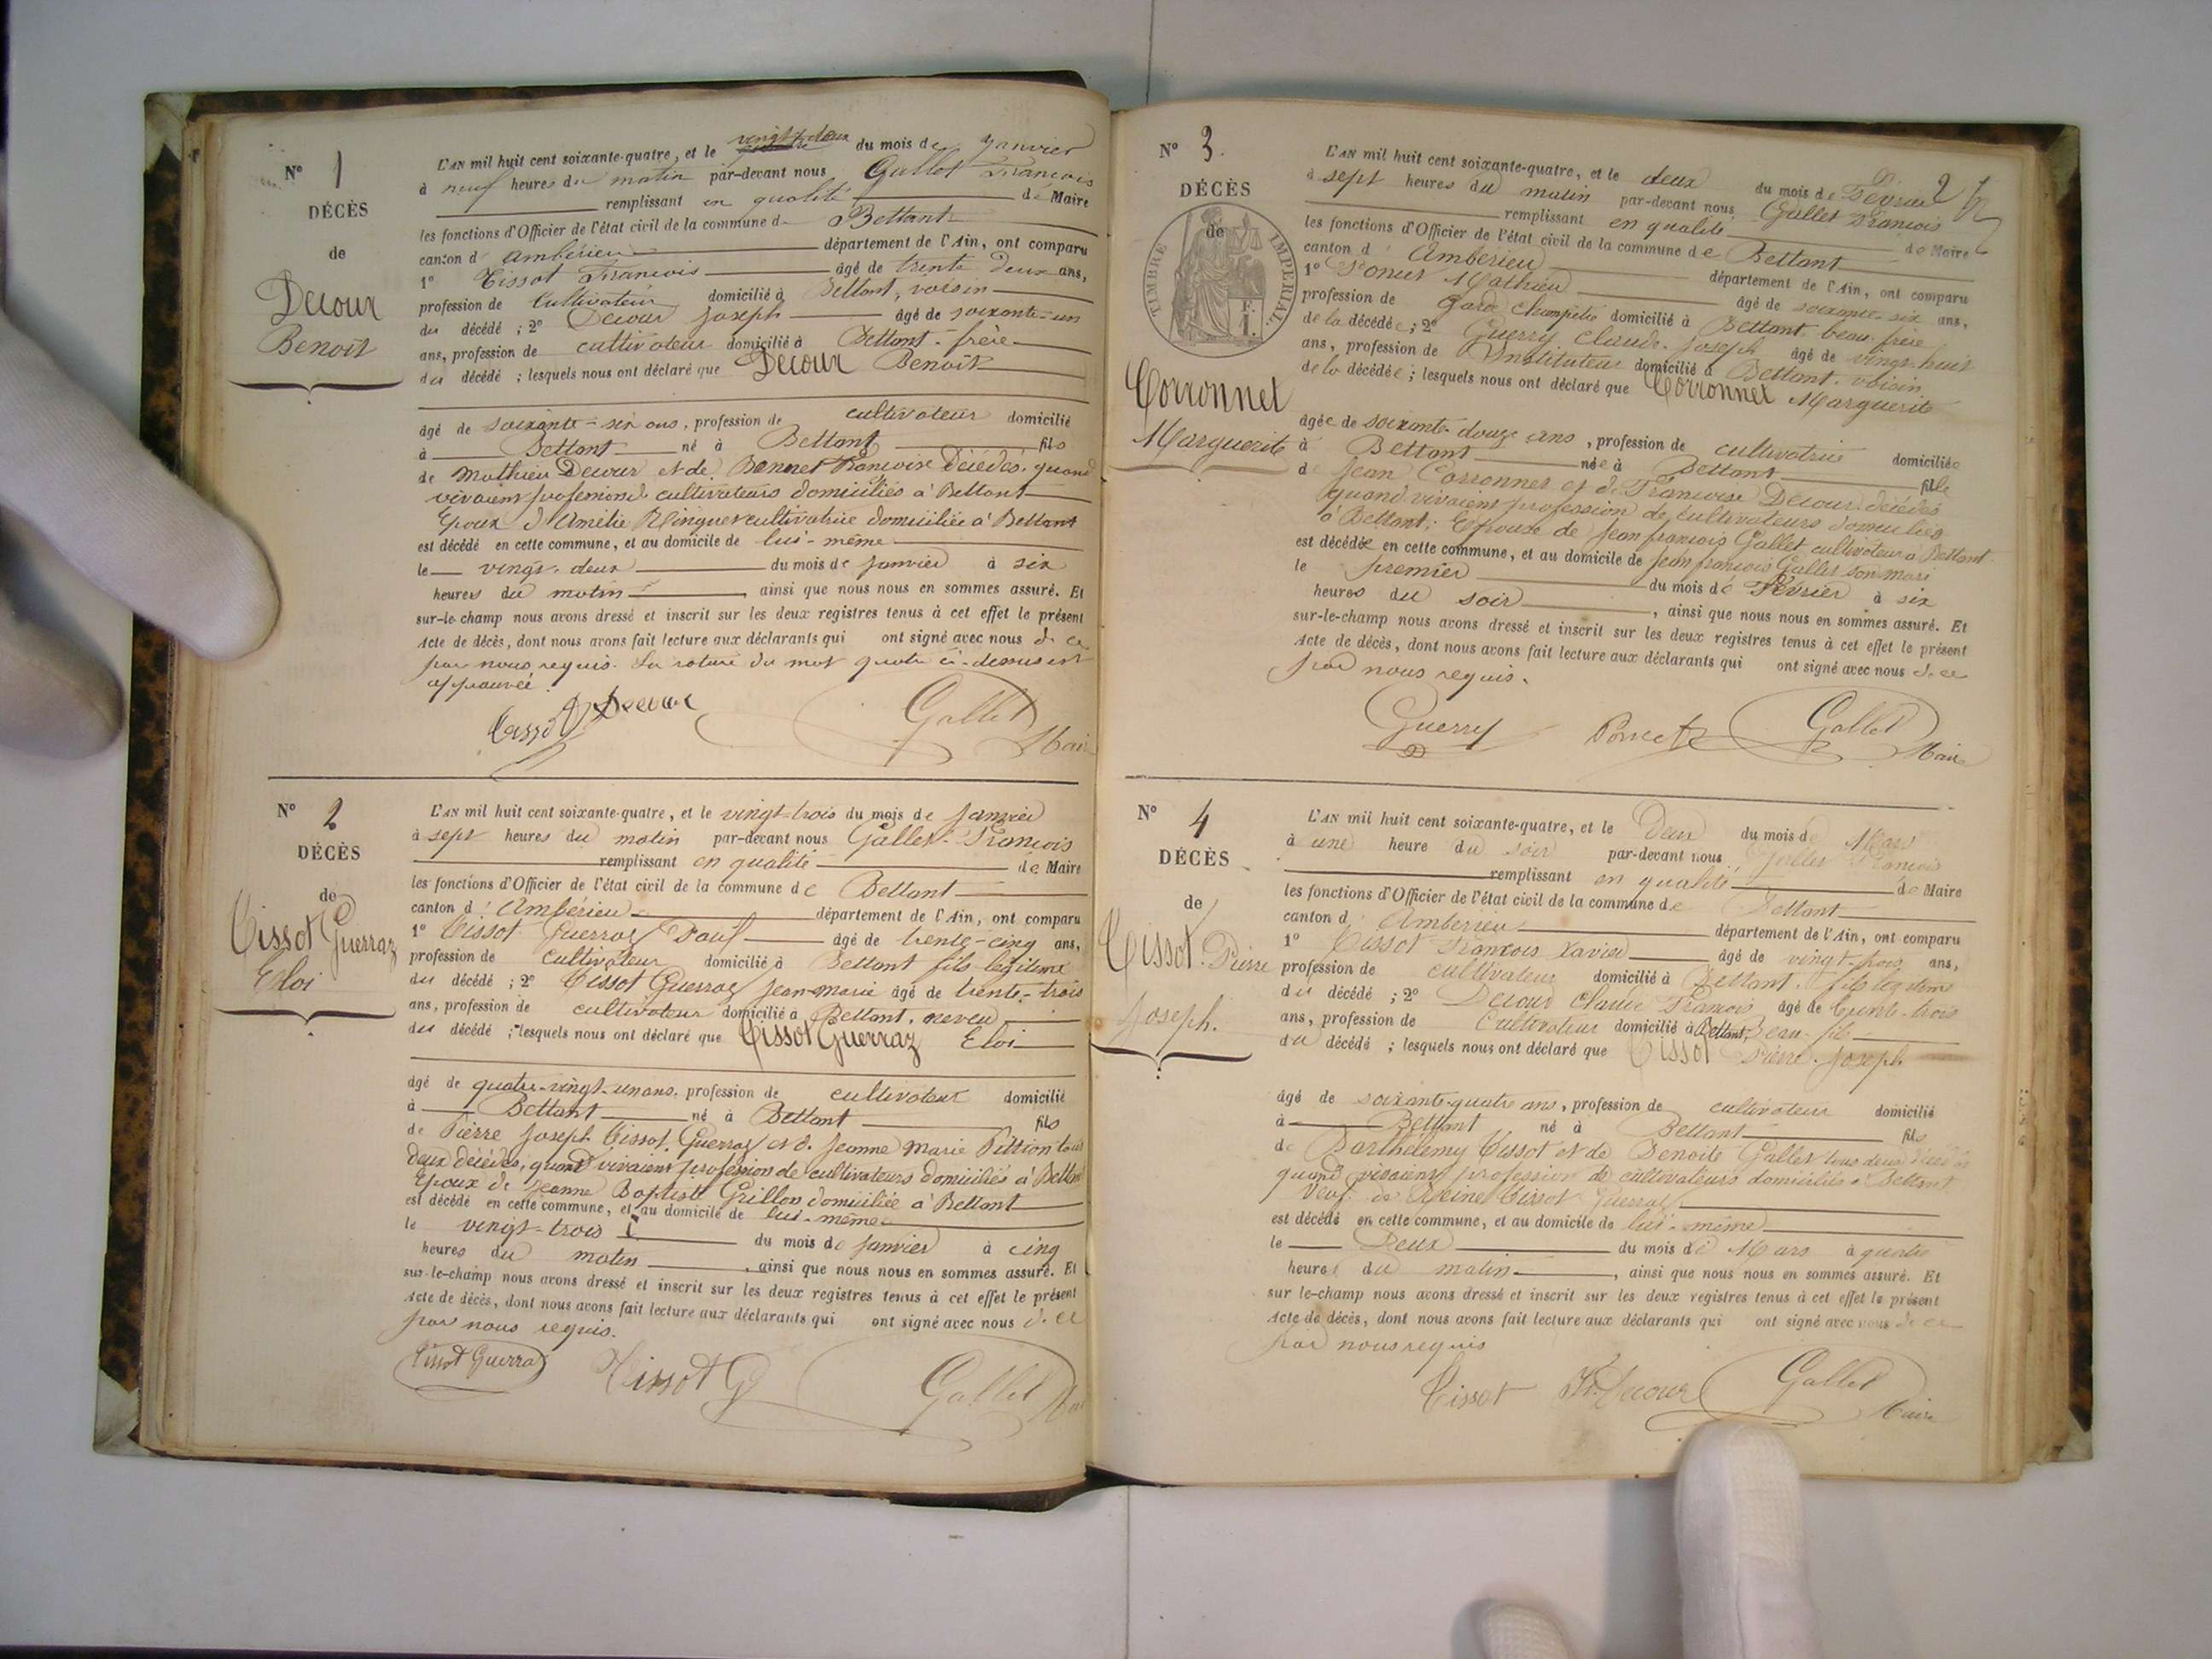 N° 1
DÉCÈS
de
Decour
Benoit
L'AN mil huit cent soixante-quatre, et le vingt deux du mois de Janvier
à neuf heures du matin par-devant nous Gallet François
remplissant en qualité de Maire
les fonctions d'Officier de l'état civil de la commune de Bettant
canton d' Ambérieu département de l'Ain, ont comparu
1° Tissot François âgé de trente deux ans,
profession de cultivateur domicilié à Bettant, voisin
du décédé ; 2° Decour Joseph âgé de soixante-un
ans, profession de cultivateur domicilié à Bettant frère
du décédé ; lesquels nous ont déclaré que Decour Benoit
âgé de soixante-six ans, profession de cultivateur domicilié
à Bettant né à Bettant fils
de Mathieu Decour et de Bonnet Françoise décédés, quand
vivaient profession de cultivateurs domiciliés à Bettant
Epoux d'Amélie cultivatrice domiciliée à Bettant
est décédé en cette commune, et au domicile de lui-même
le vingt-deux du mois de janvier à six
heures du matin, ainsi que nous nous en sommes assuré. Et
sur-le-champ nous avons dressé et inscrit sur les deux registres tenus à cet effet le présent
Acte de décès, dont nous avons fait lecture aux déclarants qui ont signé avec nous de ce
par nous requis. La rature du mot quatre ci-dessus est
approuvée.
Tissot Decour Gallet
Maire
N° 2
DÉCÈS
de
Tissot Guerraz
Eloi
L'AN mil huit cent soixante-quatre, et le vingt-trois du mois de Janvier
à sept heures du matin par-devant nous Gallet François
remplissant en qualité de Maire
les fonctions d'Officier de l'état civil de la commune de Bettant
canton d' Ambérieu département de l'Ain, ont comparu
1° Tissot Guerraz âgé de trente-cinq ans,
profession de cultivateur domicilié à Bettant fils légitime
du décédé ; 2° Tissot Guerraz Jean-Marie âgé de trente-trois
ans, profession de cultivateur domicilié à Bettant, neveu
du décédé ; lesquels nous ont déclaré que Tissot Guerraz Eloi
âgé de quatre-vingt-un ans, profession de cultivateur domicilié
à Bettant né à Bettant fils
de Pierre Joseph Tissot Guerraz et de Jeanne Marie Pittion tous
deux décédés, quand vivaient profession de cultivateurs domiciliés à Bettant
Epoux de Jeanne Baptiste Grillon domiciliée à Bettant
est décédé en cette commune, et au domicile de lui-même
le vingt-trois du mois de janvier à cinq
heures du matin, ainsi que nous nous en sommes assuré. Et
sur-le-champ nous avons dressé et inscrit sur les deux registres tenus à cet effet le présent
Acte de décès, dont nous avons fait lecture aux déclarants qui ont signé avec nous de ce
par nous requis.
Tissot Guerraz Tissot G Gallet
N° 3
DÉCÈS
de
TIMBRE IMPERIAL
F.
1.
Corronnet
Marguerite
2
L'AN mil huit cent soixante-quatre, et le deux du mois de Février
à sept heures du matin par-devant nous Gallet François
remplissant en qualité de Maire
les fonctions d'Officier de l'état civil de la commune de Bettant
canton d' Ambérieu département de l'Ain, ont comparu
1° Poncet Mathieu âgé de soixante-six ans,
profession de garde champêtre domicilié à Bettant beau-frère
de la décédée ; 2° Guerry Claude Joseph âgé de vingt-huit
ans, profession de Instituteur domicilié à Bettant voisin
de la décédée ; lesquels nous ont déclaré que Corronnet Marguerite
âgée de soixante-douze ans, profession de cultivatrice domiciliée
à Bettant née à Bettant fille
de Jean Corronnet et de Françoise Decour décédés
quand vivaient profession de cultivateurs domiciliés
à Bettant ; Epouse de Jean François Gallet cultivateur à Bettant
est décédée en cette commune, et au domicile de Jean François Gallet son mari
le premier du mois de Février à six
heures du soir, ainsi que nous nous en sommes assuré. Et
sur-le-champ nous avons dressé et inscrit sur les deux registres tenus à cet effet le présent
Acte de décès, dont nous avons fait lecture aux déclarants qui ont signé avec nous de ce
par nous requis.
Guerry Poncet Gallet
Maire
N° 4
DÉCÈS
de
Tissot Pierre
Joseph.
L'AN mil huit cent soixante-quatre, et le Deux du mois de Mars
à une heure du soir par-devant nous Gallet François
remplissant en qualité de Maire
les fonctions d'Officier de l'état civil de la commune de Bettant
canton d' Ambérieu département de l'Ain, ont comparu
1° Tissot François Xavier âgé de vingt-trois ans,
profession de cultivateur domicilié à Bettant, fils légitime
du décédé ; 2° Decour Claude François âgé de trente-trois
ans, profession de Cultivateur domicilié à Bettant, Beau-fils
du décédé ; lesquels nous ont déclaré que Tissot Pierre Joseph
âgé de soixante-quatre ans, profession de cultivateur domicilié
à Bettant né à Bettant fils
de Barthélemy Tissot et de Benoite Gallet tous deux décédés
quand vivaient profession de cultivateurs domiciliés à Bettant
Veuf de Reine Tissot Guerraz
est décédé en cette commune, et au domicile de lui-même
le Deux du mois de Mars à quatre
heures du matin, ainsi que nous nous en sommes assuré. Et
sur le-champ nous avons dressé et inscrit sur les deux registres tenus à cet effet le présent
Acte de décès, dont nous avons fait lecture aux déclarants qui ont signé avec nous de ce
par nous requis
Tissot Decour Gallet
Maire